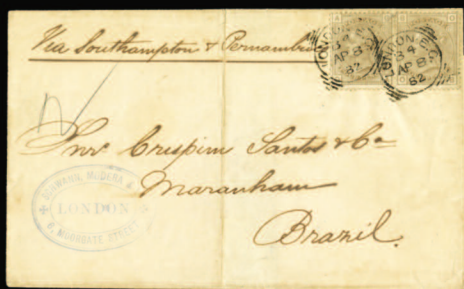 Via Southampton & Pernambuco
LONDON
84
AP 8
82
LONDON
84
AP 8
82
Snr Crispim Santos & Co
Maranham
Brazil.
SCHWANN, MODERA &
LONDON
6, MOORGATE STREET